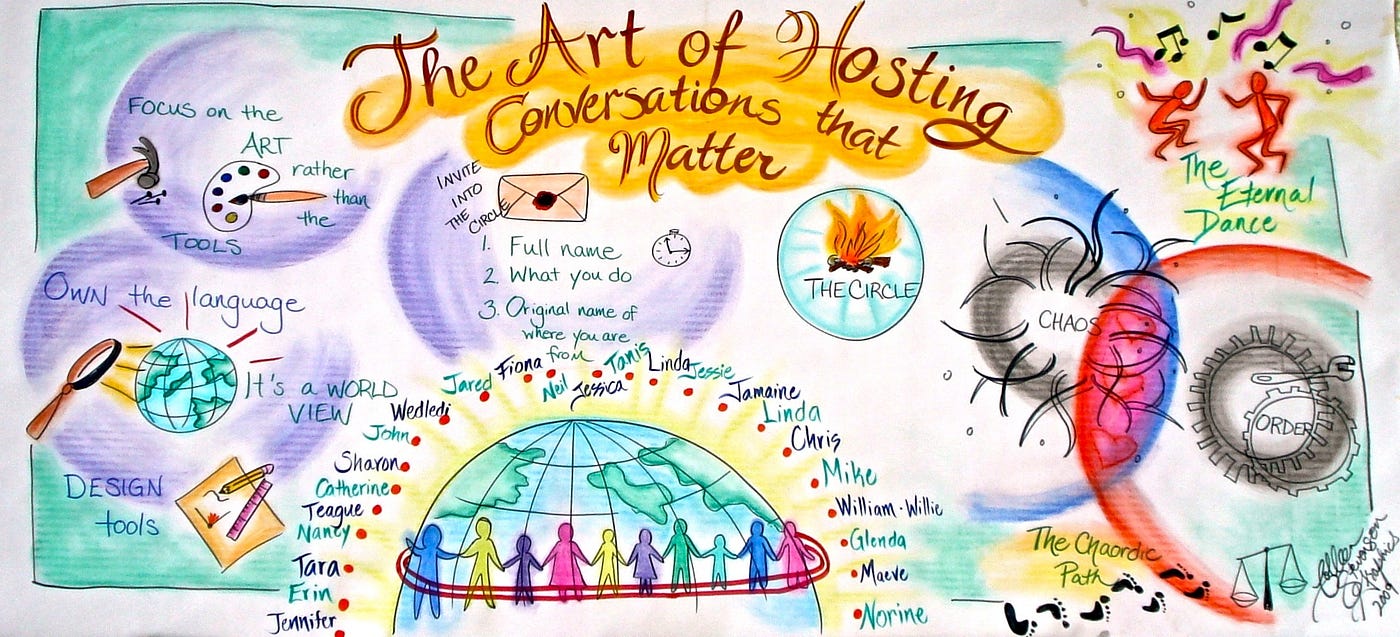 The Art of Hosting
Conversations that
Matter
FOCUS on the
ART
rather
than
the
TOOLS
OWN the language
IT'S A WORLD
VIEW
DESIGN
tools
INVITE
INTO
THE CIRCLE
1. Full name
2. What you do
3. Original name of
where you are
from
THE CIRCLE
The
Eternal
Dance
CHAOS
ORDER
The Chaordic
Path
Jennifer
Erin
Tara
Nancy
Teague
Catherine
Sharon
John
Wedledi
Jared
Fiona
Neil
Jessica
Tanis
Linda
Jessie
Jamaine
Linda
Chris
Mike
William·Willie
Glenda
Maeve
Norine
Colleen
Stevenson
Graphics
2007